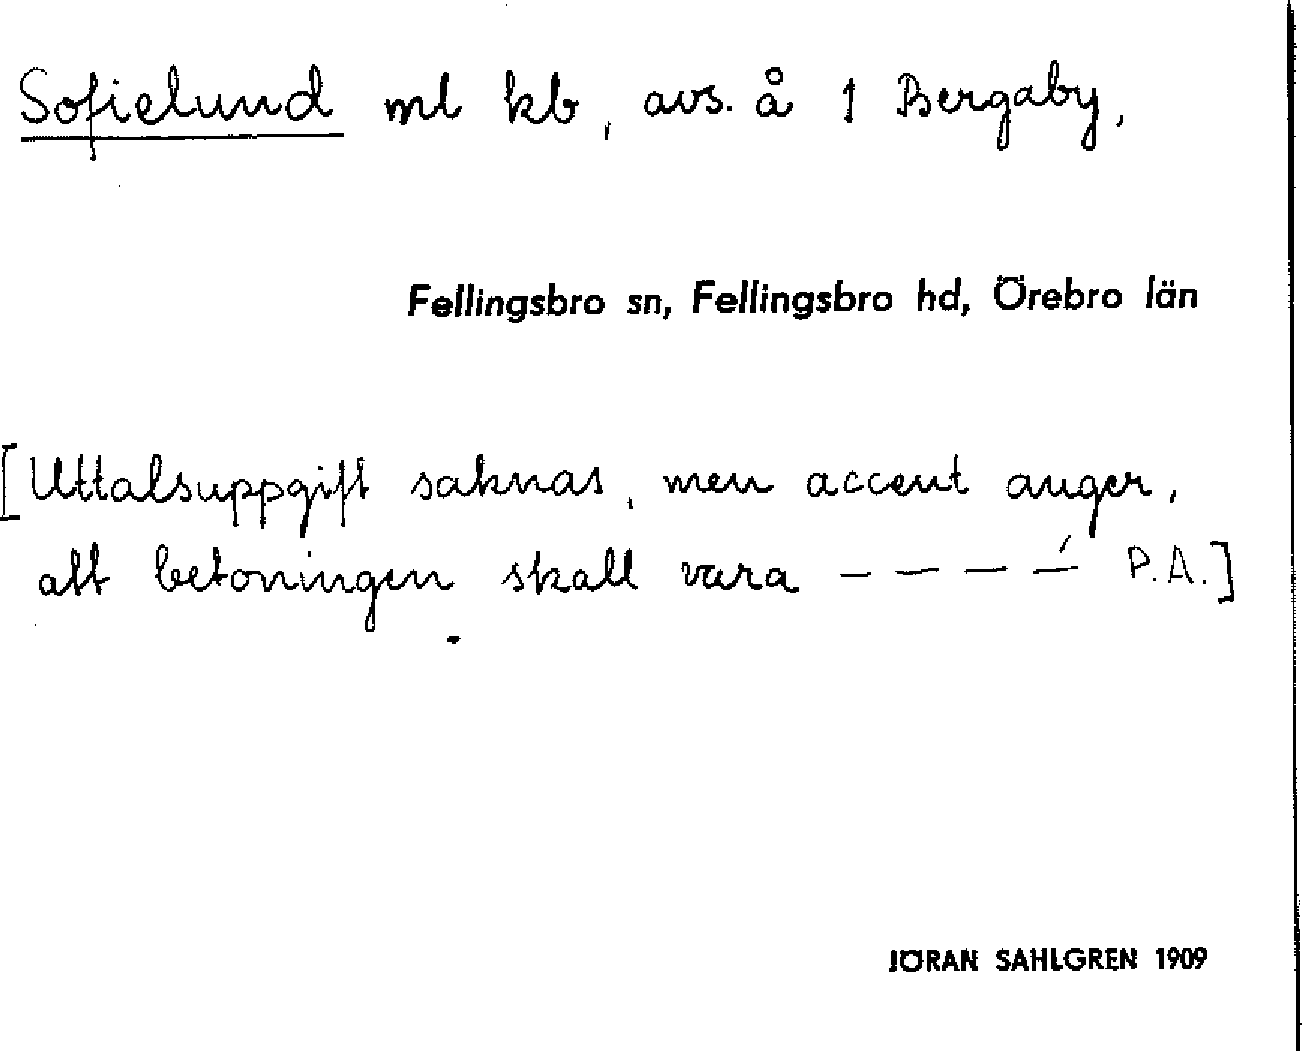 Sofielund ml kb, avs. å 1 Bergaby,
Fellingsbro sn, Fellingsbro hd, Örebro län
[Uttalsuppgift saknas, men accent anger,
att betoningen skall vara – – – –́ P.A.]
JÖRAN SAHLGREN 1909